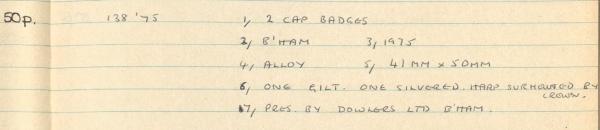 50p. 138 '75 1, 2 CAP BADGES
2, B'HAM 3, 1975
4, ALLOY 5, 41MM x 50MM
6, ONE GILT. ONE SILVERED. HARP SURMOUNTED BY
CROWN.
17, PRES. BY DOWLERS LTD B'HAM.